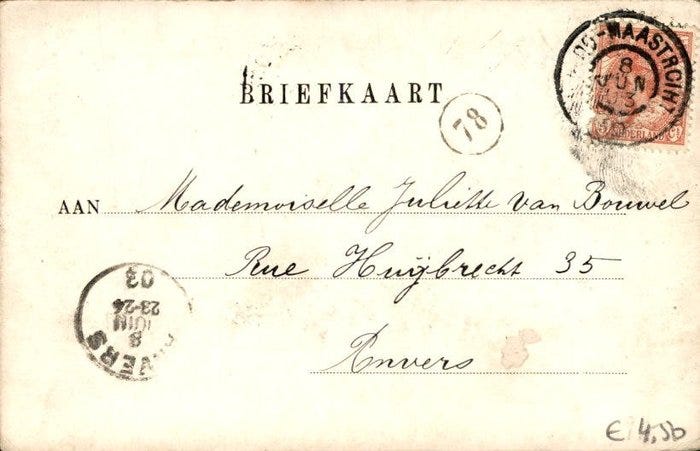 BRIEFKAART
78
MAASTRICHT
8
JUN
3
NEDERLAND
AAN Mademoiselle Juliette van Bouwel
Rue Huijbrecht 35
Anvers
ANVERS
8
JUIN
23-24
03
€ 4,50